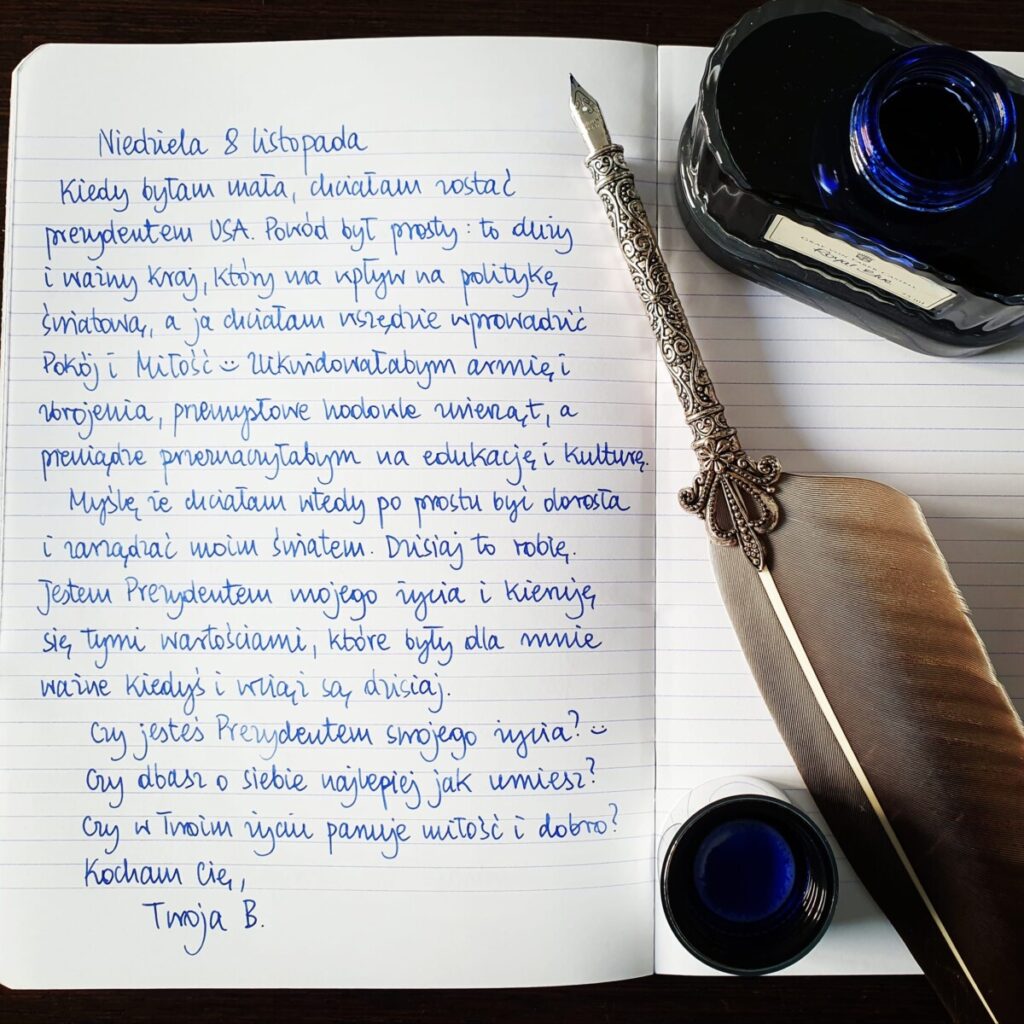 Niedziela 8 listopada
Kiedy byłam mała, chciałam zostać
prezydentem USA. Powód był prosty: to duży
i ważny kraj, który ma wpływ na politykę
światową, a ja chciałam wszędzie wprowadzić
Pokój i Miłość :) Zlikwidowałabym armię i
zbrojenia, przemysłowe hodowle zwierząt, a
pieniądze przeznaczyłabym na edukację i kulturę.
Myślę że chciałam wtedy po prostu być dorosła
i zarządzać moim światem. Dzisiaj to robię.
Jestem Prezydentem mojego życia i kieruję
się tymi wartościami, które były dla mnie
ważne kiedyś i wciąż są dzisiaj.
Czy jesteś Prezydentem swojego życia? :)
Czy dbasz o siebie najlepiej jak umiesz?
Czy w Twoim życiu panuje miłość i dobro?
Kocham Cię,
Twoja B.
Royal Blue